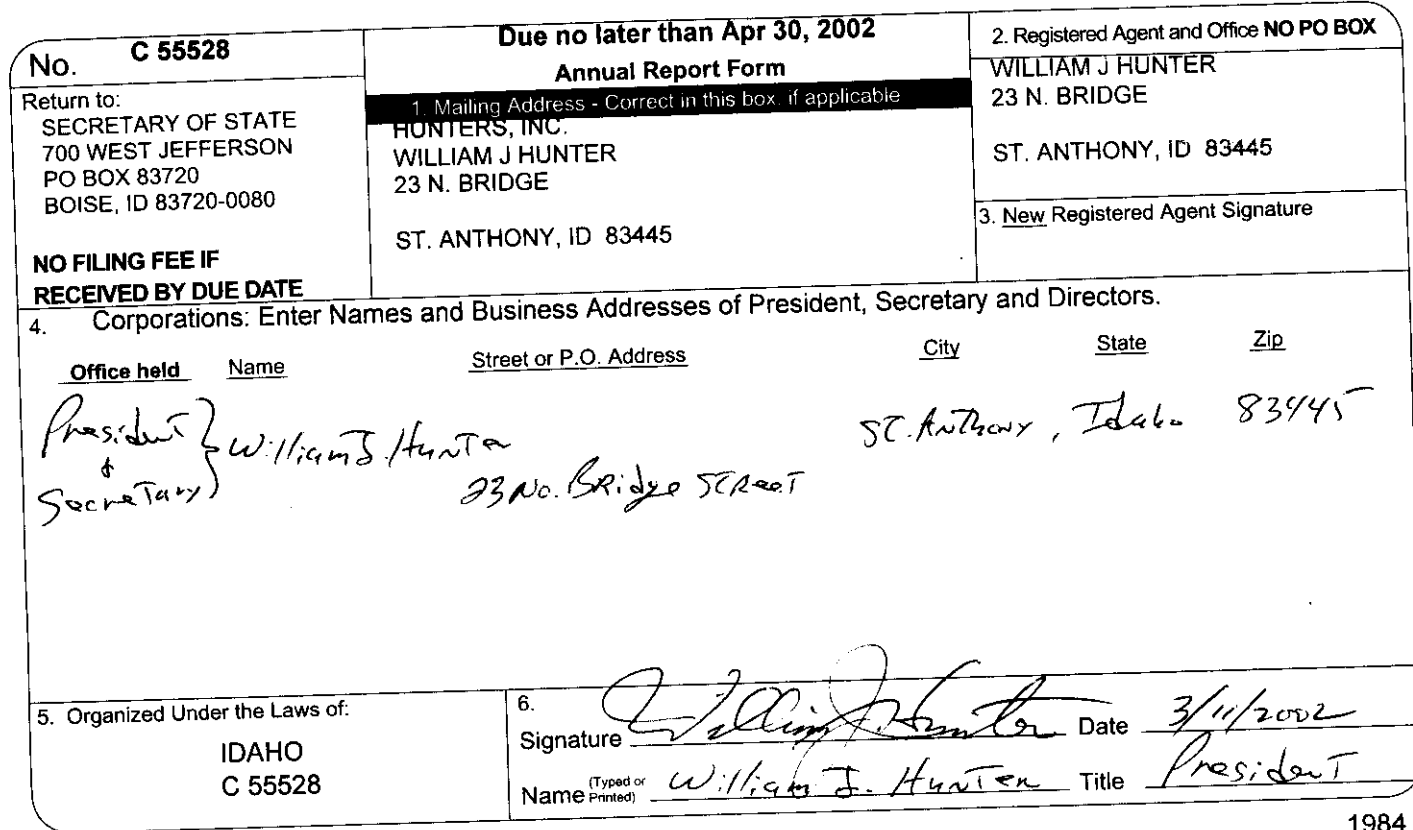 No. C 55528
Return to:
SECRETARY OF STATE
700 WEST JEFFERSON
PO BOX 83720
BOISE, ID 83720-0080
NO FILING FEE IF
RECEIVED BY DUE DATE
Due no later than Apr 30, 2002
Annual Report Form
1. Mailing Address - Correct in this box, if applicable
HUNTERS, INC.
WILLIAM J HUNTER
23 N. BRIDGE
ST. ANTHONY, ID 83445
2. Registered Agent and Office NO PO BOX
WILLIAM J HUNTER
23 N. BRIDGE
ST. ANTHONY, ID 83445
3. New Registered Agent Signature
4. Corporations: Enter Names and Business Addresses of President, Secretary and Directors.
Office held Name Street or P.O. Address City State Zip
President William J. Hunter St. Anthony, Idaho 83445
&
Secretary 23 No. Bridge Street
5. Organized Under the Laws of:
IDAHO
C 55528
6.
Signature William J. Hunter Date 3/11/2002
Name (Typed or Printed) William J. Hunter Title President
1984